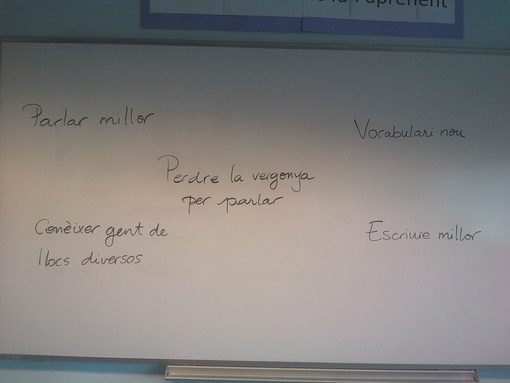 la l'aprenent
Parlar millor
Vocabulari nou
Perdre la vergonya
per parlar
Conèixer gent de
llocs diversos
Escriure millor